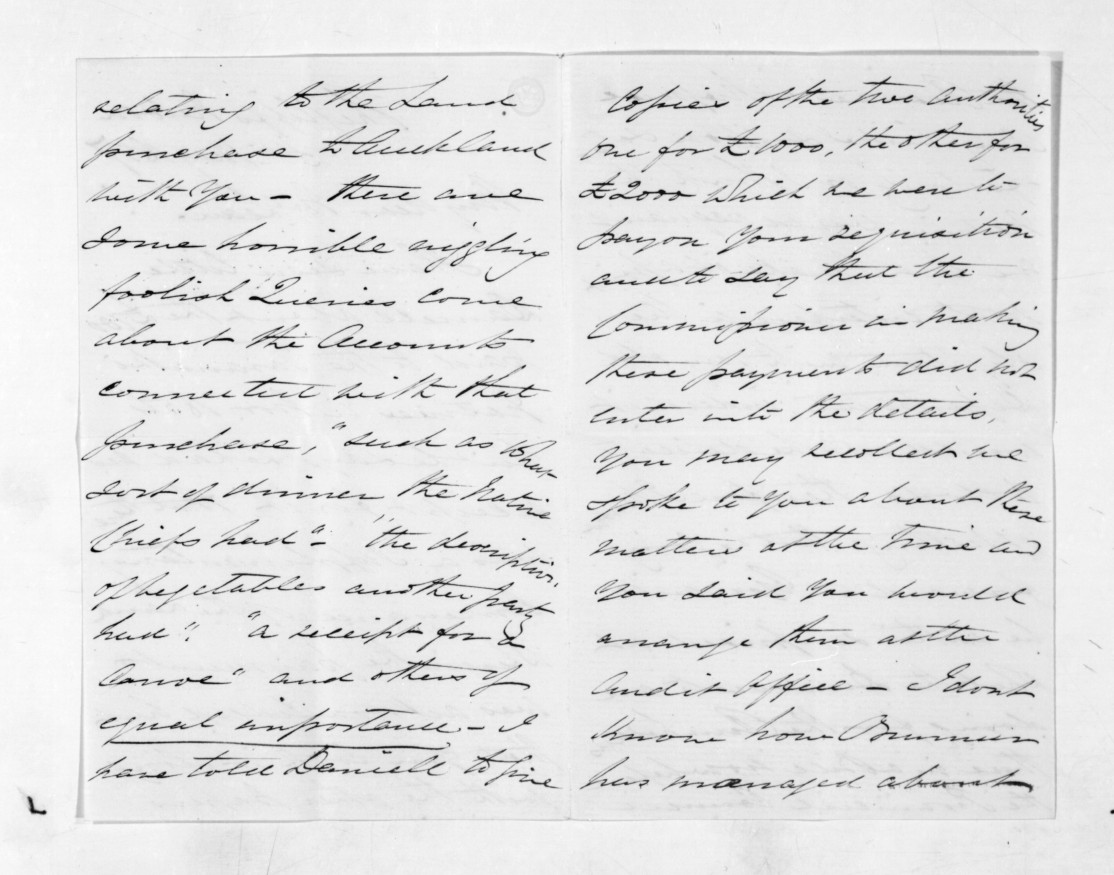 relating to the Land
purchase to Auckland
with You - there are
some horrible niggling
foolish Queries come
about the Accounts
connected with that
purchase, "such as what
sort of dinner the Native
Chiefs had" - "the description
of vegetables another party
had". "a receipt for a
Canoe" and others of
equal importance - I
have told Daniell to give
Copies of the two authorities
one for £1000, the other for
£2000 which we were to
pay on Your requisition
and to say that the
Commissioner in making
these payments did not
enter into the details,
You may recollect we
spoke to You about these
matters at the Time and
You said You would
arrange them at the
Audit Office - I dont
Know how
has managed about